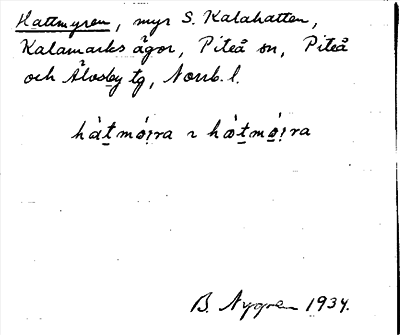 Hattmyren, myr S. Kalahatten,
Kalamarks ägor, Piteå sn, Piteå
och Älvsby tg, Norrb. l.
hàt̠mó̤ı̣ra ~ hæ̀t̠mó̤ı̣ra
B. Nygren 1934.